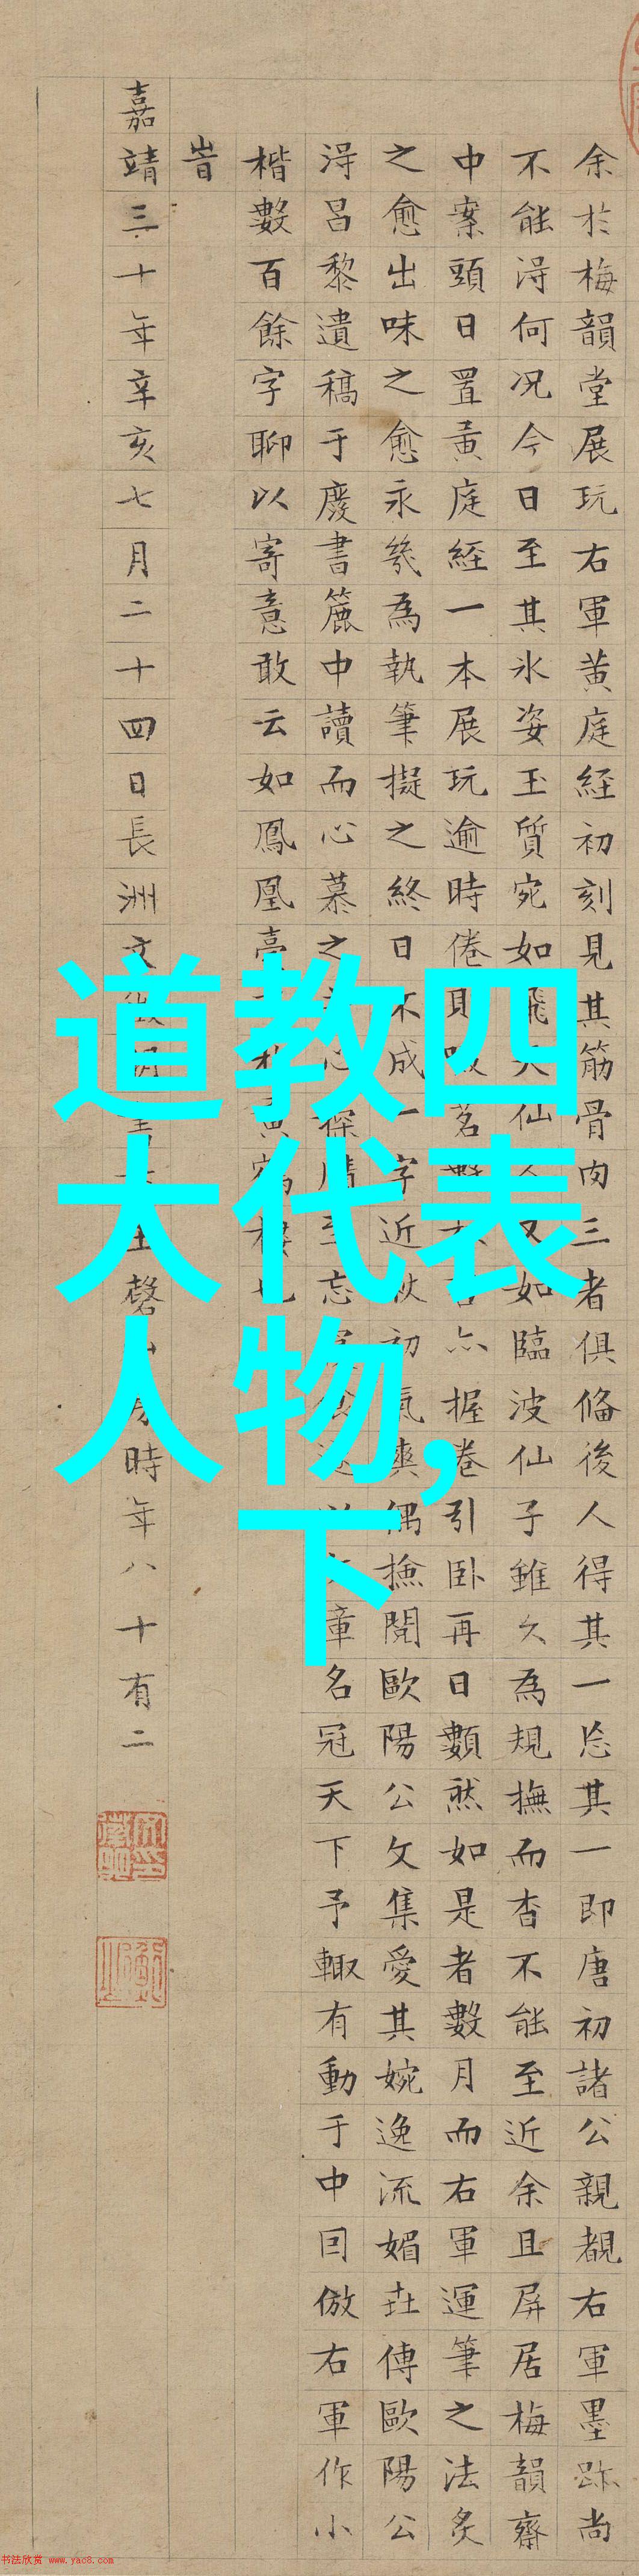 余於梅韻堂展玩右軍黄庭経初刻見其筋骨肉三者俱俻後人得其一忘其一即唐初諸公親覩右軍墨跡尚
不能淂何况今日至其氷姿玉質宛如飛天仙人又如臨波仙子雖久為規撫而杳不能至近余且屏居梅韻齋
中案頭日置黄庭経一本展玩逾時倦則啜茗數杯否亦握卷引卧再日數然如是者數月而右軍運筆之法炙
之愈出味之愈永幾為執筆擬之終日不成一字近秋初氣爽偶撿閲歐陽公文集愛其婉逸流媚
傳歐陽公
淂吕黎遺稿于廢書簏中讀而心慕之
探
至忘
食
章名冠天下予輙有動于中囙倣右軍作小
楷數百餘字聊以寄意敢云如鳳凰
黄鶴樓也
旹
嘉靖三十年辛亥七月二十四日長洲文
時年八十有二
道教四
大代表
人物,
下
书法欣赏 www.yac8.com